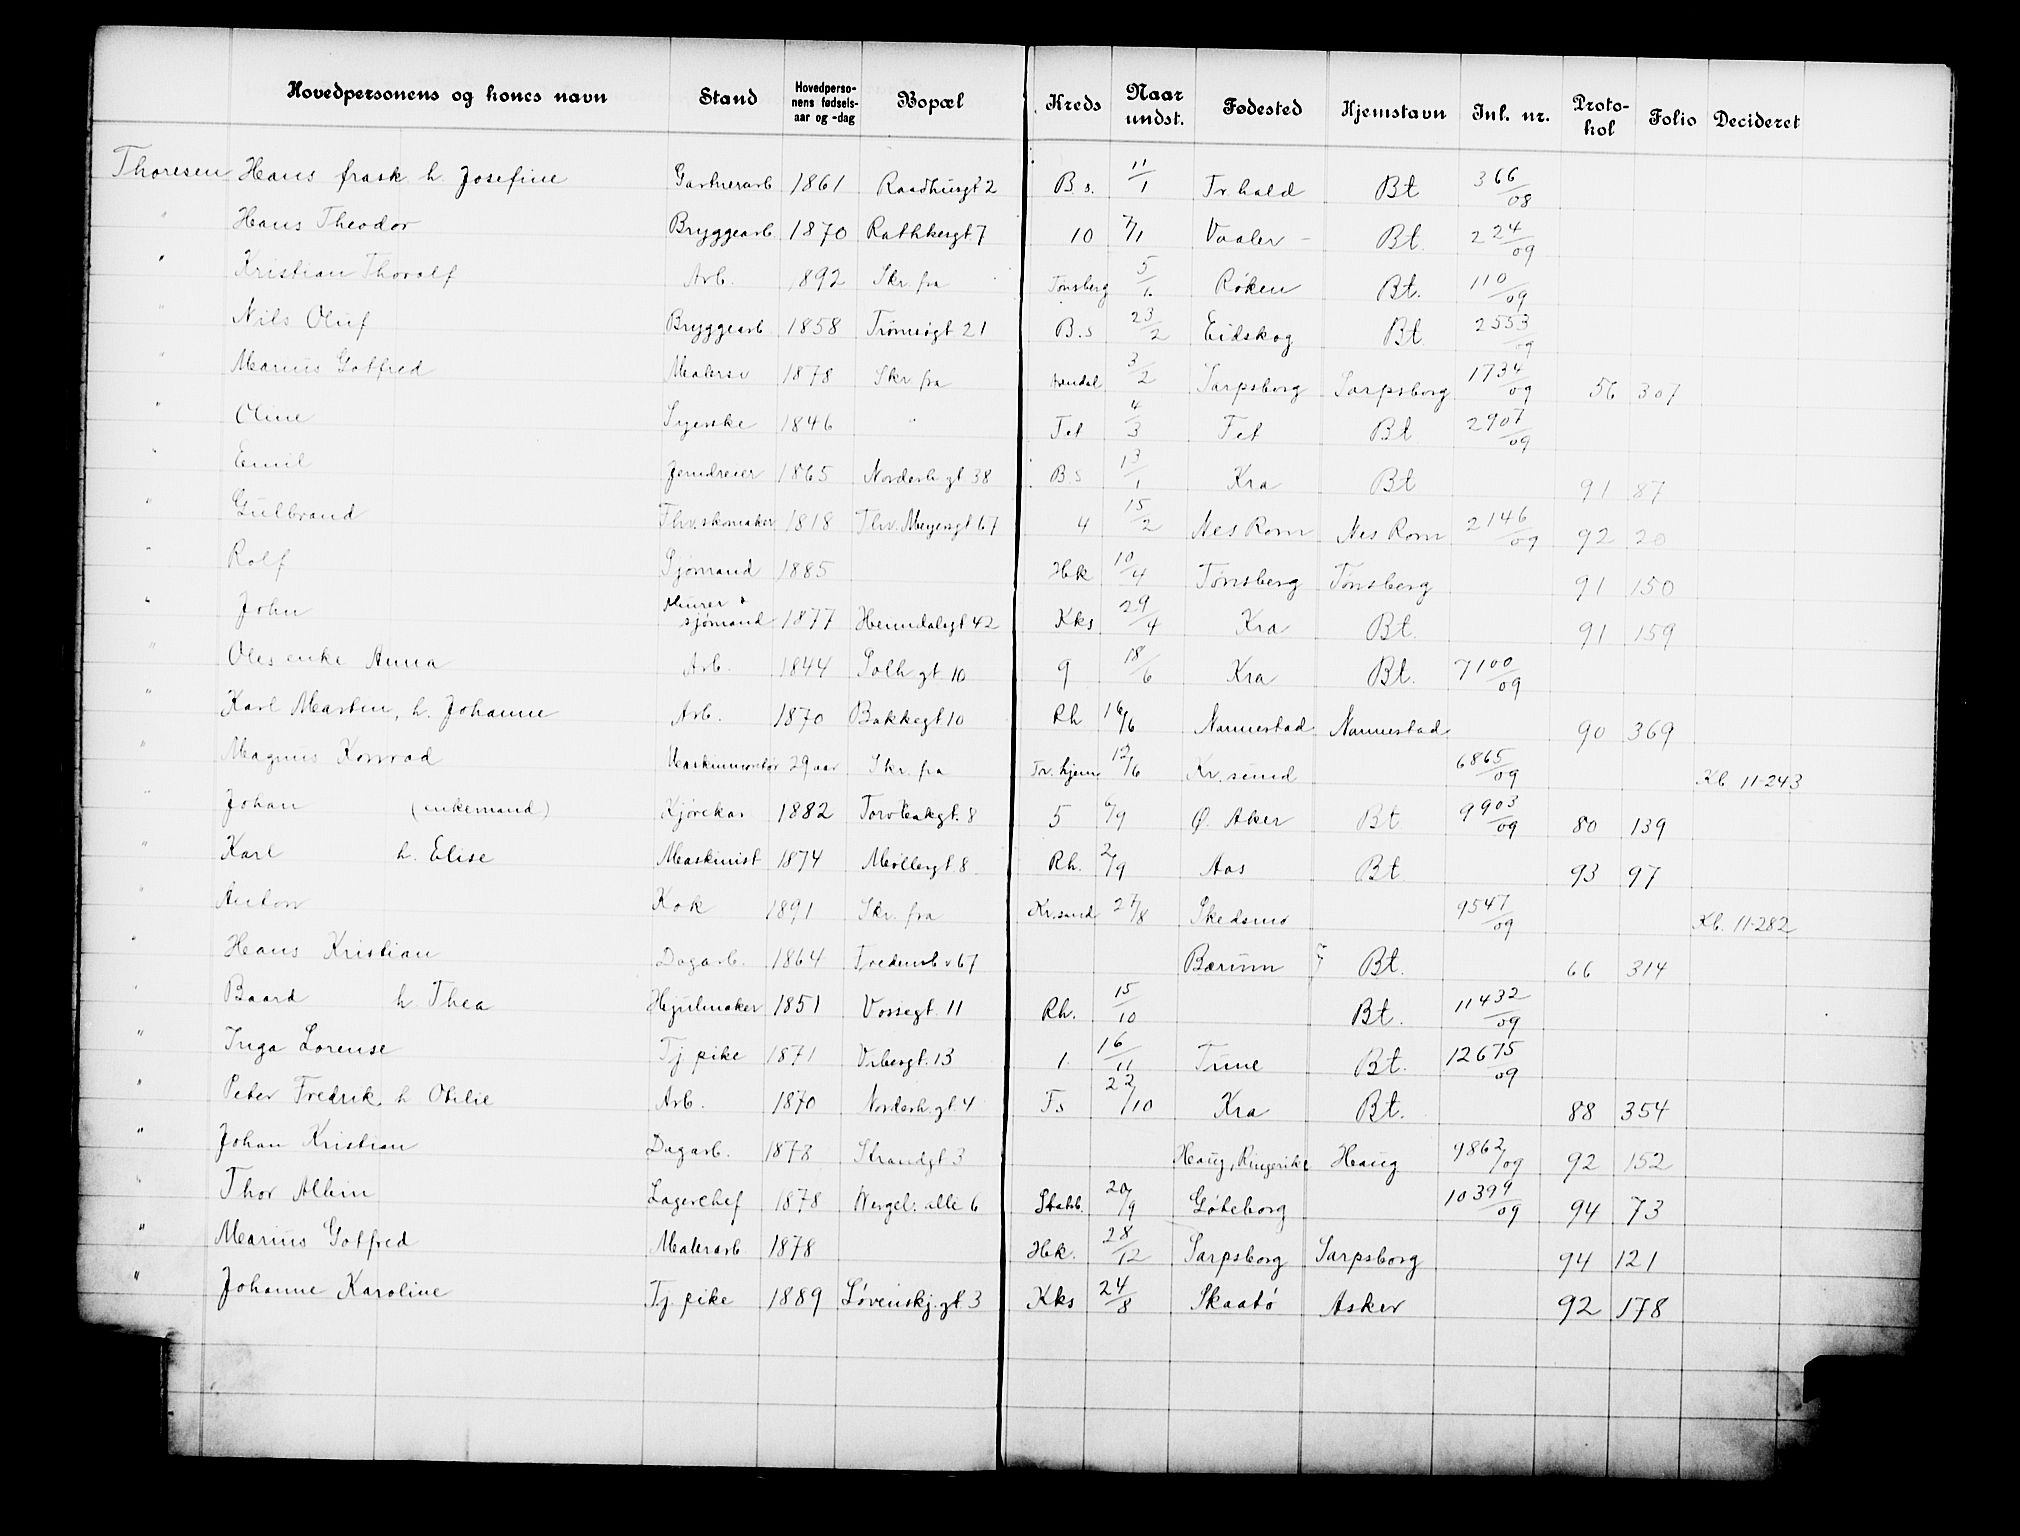 Hovedpersonens og kones navn | Stand | Hovedperso-nens fødsels-aar og -dag | Bopæl | Kreds | Naar undst. | Fødested | Hjemstavn | Inl. nr. | Proto-kol | Folio | Decideret
Thoresen Hans frask. h. Josefine | Gartnerarb | 1861 | Raadhusgt 2 | B.s. | 11/1 | Fr.hald | Bt | 366/08
" Hans Theodor | Bryggearb | 1870 | Rathkesgt 7 | 10 | 7/1 | Vaaler | Bt. | 224/09
" Kristian Thoralf | Arb. | 1892 | Skr. fra | Tønsberg | 5/1. | Røken | Bt. | 110/09
" Nils Oluf | Bryggearb | 1858 | Tromsøgt 21 | B.s | 23/2 | Eidskog | Bt. | 2553/09
" Marius Gotfred | Malersv | 1878 | Skr fra | Arendal | 3/2 | Sarpsborg | Sarpsborg | 1734/09 | 56 | 307
" Oline | Syerske | 1846 | " | Fet | 4/3 | Fet | Bt | 2907/09
" Emil | Jerndreier | 1865 | Norderh gt 38 | B.s | 13/1 | Kra | Bt | 91 | 87
" Gulbrand | Fhv. skomaker | 1818 | Thv. Meyersgt 67 | 4 | 15/2 | Nes Rom | Nes Rom | 2146/09 | 92 | 20
" Rolf | Sjømand | 1885 | Hk | 10/4 | Tønsberg | Tønsberg | 91 | 150
" John | Murer & sjømand | 1877 | Heimdalsgt 42 | Kks | 29/4 | Kra | Bt. | 91 | 159
" Oles enke Anna | Arb. | 1844 | Solh gt 10 | 9 | 18/6 | Kra | Bt. | 7100/09
" Karl Martin, h. Johanne | Arb. | 1870 | Bakkegt 10 | Rh | 16/6 | Nannestad | Nannestad | 90 | 369
" Magnus Konrad | Maskinmontør | 29 aar | Skr. fra | Tr. hjem | 12/6 | Kr. sund | 6865/09 | Kb 11-243
" Johan (enkemand) | Kjørekar | 1882 | Torvbakgt. 8 | 5 | 6/9 | Ø. Aker | Bt | 9903/09 | 80 | 139
" Karl h. Elise | Maskinist | 1874 | Møllergt 8 | Rh. | 2/9 | Aas | Bt. | 93 | 97
" Anton | Kok | 1891 | Skr. fra | Kr.sand | 27/8 | Skedsmo | 9547/09 | Kb. 11-282
" Hans Kristian | Dagarb. | 1864 | Fredensb.v 67 | Bærum | Bt. | 66 | 314
" Baard h. Thea | Hjulmaker | 1851 | Vossegt. 11 | Rh. | 15/10 | Bt. | 11432/09
" Inga Lorense | Tj pike | 1871 | Vibesgt. 13 | 1. | 16/11 | Tune | Bt. | 12675/09
" Peter Fredrik h Otilie | Arb. | 1870 | Norderh. gt 4 | Fs | 22/10 | Kra | Bt. | 88 | 354
" Johan Kristian | Dagarb. | 1878 | Strandgt 3 | Haug, Ringerike | Haug | 9862/09 | 92 | 152
" Thor Albin | Lagerchef | 1878 | Wergel. alle 6 | Stabb. | 20/9 | Gøteborg | 10399/09 | 94 | 73
" Marius Gotfred | Malerarb | 1878 | Hk. | 28/12 | Sarpsborg | Sarpsborg | 94 | 121
" Johanne Karoline | Tj. pike | 1889 | Løvenskj. gt. 3 | Kks | 24/8 | Skaatø | Asker | 92 | 178